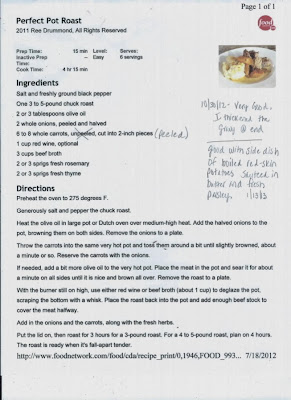 Page 1 of 1
Perfect Pot Roast
2011 Ree Drummond, All Rights Reserved
food
Prep Time: 15 min Level: Serves:
Inactive Prep – Easy 6 servings
Time:
Cook Time: 4 hr 15 min
Ingredients
Salt and freshly ground black pepper
One 3 to 5-pound chuck roast
2 or 3 tablespoons olive oil
2 whole onions, peeled and halved
6 to 8 whole carrots, unpeeled, cut into 2-inch pieces (peeled)
1 cup red wine, optional
3 cups beef broth
2 or 3 sprigs fresh rosemary
2 or 3 sprigs fresh thyme
10/30/12 - Very good.
I thickened the
gravy @ end
good with side dish
of boiled red-skin
potatoes sauteed in
butter and fresh
parsley. 1/13/13
Directions
Preheat the oven to 275 degrees F.
Generously salt and pepper the chuck roast.
Heat the olive oil in large pot or Dutch oven over medium-high heat. Add the halved onions to the
pot, browning them on both sides. Remove the onions to a plate.
Throw the carrots into the same very hot pot and toss them around a bit until slightly browned, about
a minute or so. Reserve the carrots with the onions.
If needed, add a bit more olive oil to the very hot pot. Place the meat in the pot and sear it for about
a minute on all sides until it is nice and brown all over. Remove the roast to a plate.
With the burner still on high, use either red wine or beef broth (about 1 cup) to deglaze the pot,
scraping the bottom with a whisk. Place the roast back into the pot and add enough beef stock to
cover the meat halfway.
Add in the onions and the carrots, along with the fresh herbs.
Put the lid on, then roast for 3 hours for a 3-pound roast. For a 4 to 5-pound roast, plan on 4 hours.
The roast is ready when it's fall-apart tender.
http://www.foodnetwork.com/food/cda/recipe_print/0,1946,FOOD_993... 7/18/2012